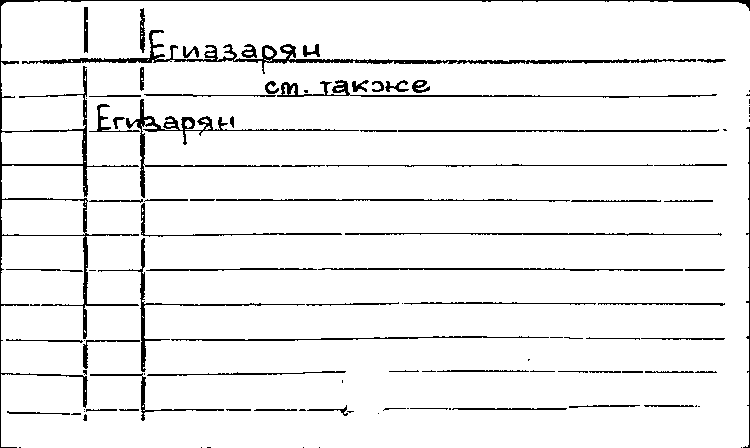 Егиазарян
см. также
Егизарян